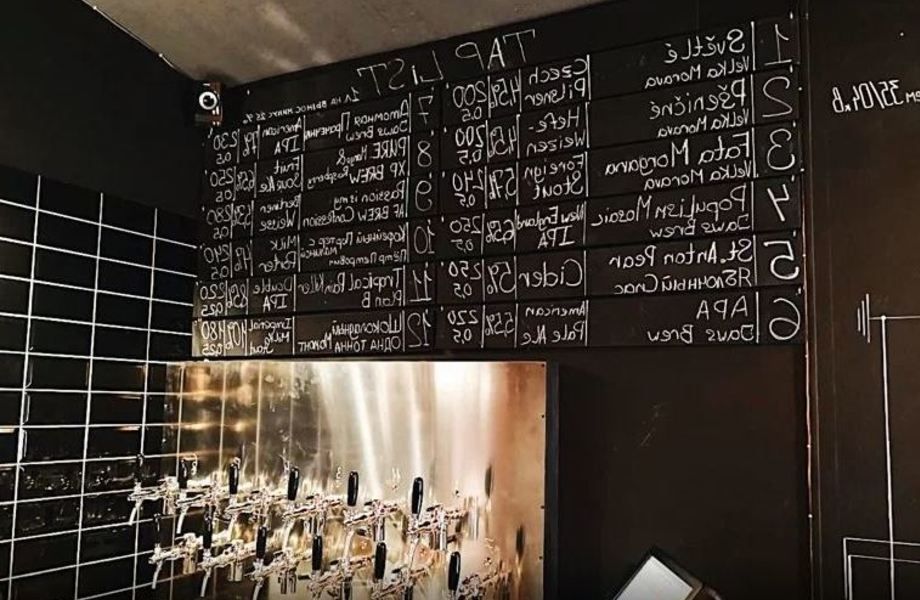 TAP LIST
1л на вынос минус 25%
1 Světlé Velka Morava Czech Pilsner 4,5% 200 0,5
2 Pšeničné Velka Morava Hefe-Weizen 4,5% 200 0,5
3 Fata Morgana Velka Morava Foreign Stout 240 0,5
4 Populism Mosaic Jaws Brew New England IPA 6,5% 250 0,5
5 St. Anton Pear Яблочный Спас Cider 5% 250 0,5
6 APA Jaws Brew American Pale Ale 5,5% 220 0,5
7 Атомная Прачечная Jaws Brew American IPA 230 0,5
8 PURE XP BREW Raspberry Fruit Sour Ale 250 0,5
9 Passion is my Confession AF BREW Berliner Weisse 280
10 Кофейный Портер с малиной Пётр Петрович Milk Porter 240 0,5
11 Tropical Rain Killer Plan B Double IPA 220 0,25
12 Шоколадный Мамонт Одна Тонна Imperial Milk Stout 10% 480 0,25